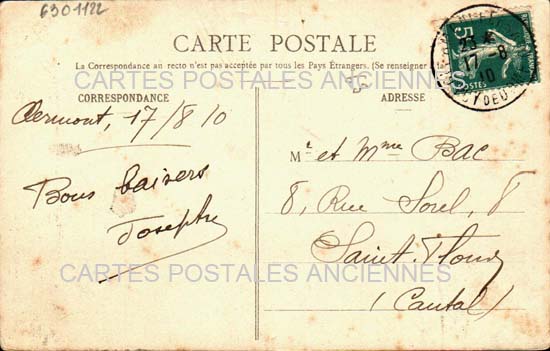 6301122
CARTE POSTALE
La Correspondance au recto n'est pas acceptée par tous les Pays Étrangers. (Se renseigner
CARTES POSTALES ANCIENNES
CORRESPONDANCE
ADRESSE
5
POSTES
23
17 - 8
10
PUY DE D
Clermont, 17/8/10
Bons baisers
Joseph
Mr et Mme Bac
8, Rue Sorel, 8
Saint-Flour
(Cantal)
CARTES POSTALES ANCIENNES